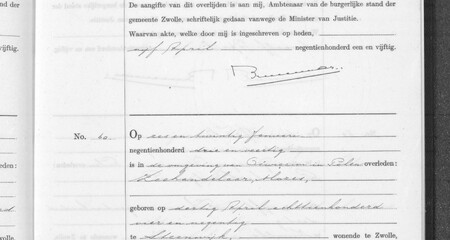 De aangifte van dit overlijden is aan mij, Ambtenaar van de burgerlijke stand der
gemeente Zwolle, schriftelijk gedaan vanwege de Minister van Justitie.
Waarvan akte, welke door mij is ingeschreven op heden,
vijf April negentienhonderd een en vijftig.
No. 60 Op een en twintig Januari
negentienhonderd drie en veertig
is in de omgeving van in Polen overleden:
geboren op dertig April achttienhonderd
vier en negentig
te Steenwijk, wonende te Zwolle,
jftig.
eden:
olle,